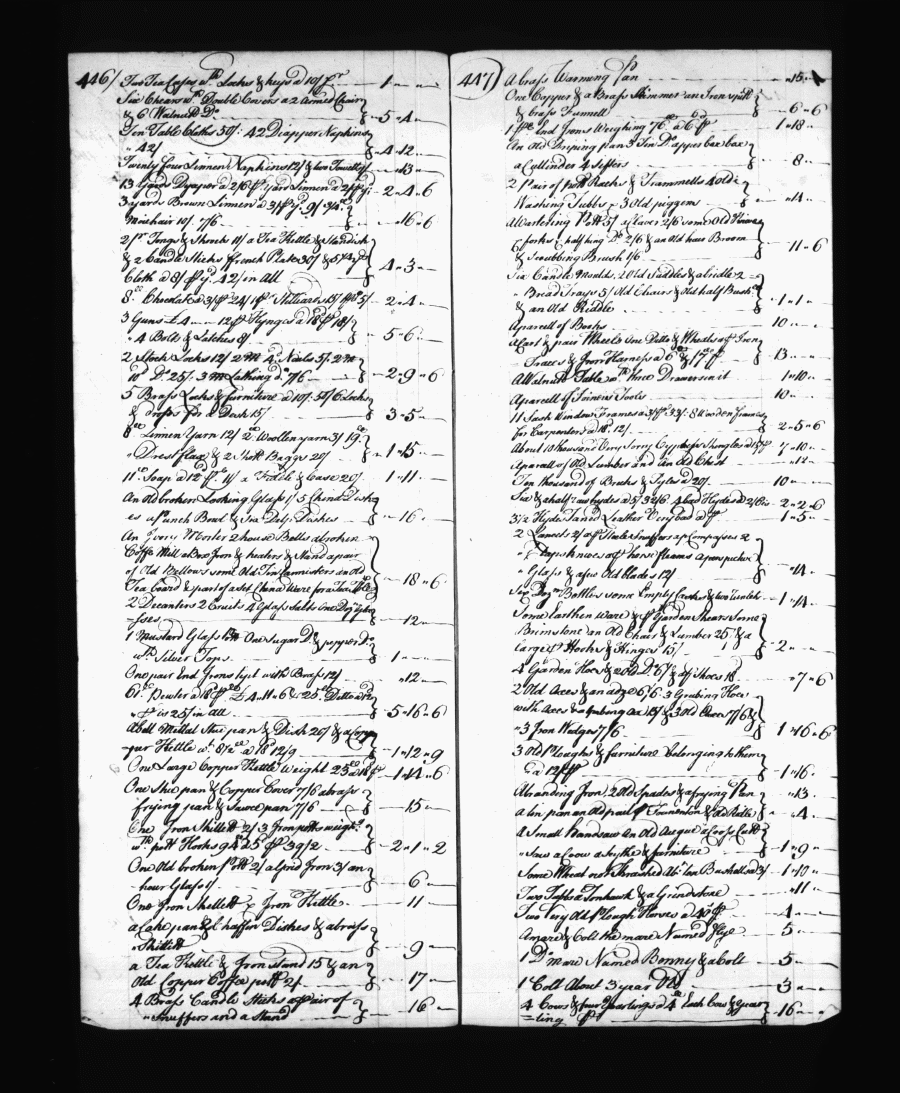 446/ Two Tea Cases wth Locks & keys a 10/ pr 1 " - " -
Six Chears wth Double Covers a 2 Armed Chair
& 6 Walnutt Do 5 " 4 " -
Ten Table Cloths 50/. 42 Deapper Napkins
" 42/ 4 " 12 " -
Twenty four Linnen Napkins 12/ & two Towells " 13 " -
13 Yards Dyaper a 2/6 p yard Linnen a 2/ p yd 2 " 4 " 6
3 yards Brown Linnen a 3/ p yd 9/
Mohair 10/. 7/6 " 16 " 6
2 pr Tongs & Shovle 11/ a Tea Kettle & Standish
& 2 Candle Sticks french Plate 30/ &
Cloth a 8/ p yd. 42/ in All 4 " 3 " -
8 lb Chocolate a 3/ p 24/ 1 pr Stilliards 15/ 2 " 4 " -
3 Guns £ 4 12 pr Hynges a 18d p 18/
" 4 Bolts & Latches 8/ 5 " 6 " -
2 Stock Locks 12/ 2 M 4d Nails 5/. 2 M
10d Do. 25/. 3 M Lathing do 7/6 2 " 9 " 6
5 Brass Locks & furniture a 10/. 50/ 6 Locks
& drops for a Desk 15/ 3 " 5 " -
8 lb Linnen Yarn 12/ 2 lb Woollen yarn 3/ 19 lb
" Drest flax & 2 Baggs 20/ 1 " 15 " -
11 lb Soap a 12d p lb 11/ a Fiddle & case 20/ 1 " 11 " -
An Old broken Looking Glass 1/ 5 China Dish
es a Punch Bowl & Six Delp Dishes " 16 " -
An Ivory Morter 2 house Bells a broken
Coffe Mill a Box Iron & heaters & Stand a pair
of Old Bellows some Old Tin Cannisters an Old
Tea board & part of a Set China Ware for a Tea Table " 18 " 6
2 Decanters 2 Cruits 4 Glass Salts One Dozn Glas
=sses " 12 " -
1 Mustard Glass One Sugar Do & pepper Do
wth Silver Tops 1 " - " -
One pair End Irons tipt with Brass 12/ " 12 " -
61 lb Pewter a 18d p lb £ 4 " 11 " 6 & 25 lb Ditto a 12
" p is 25/ in all 5 " 16 " 6
A Bell Mettal Stue pan & Dish 20/ & a Copp
=per Kettle wt. 8 1/2 lb a 18d 12/9 1 " 12 " 9
One Large Copper Kettle Weight 23 lb a 18d p 1 " 14 " 6
One Stue pan & Copper Cover 7/6 a brass
frying pan & Sauce pan 7/6 " 15 " -
One Iron Skillett 2/ 3 Iron potts weight
wth pott Hooks 94 lb a 5d p 39/2 2 " 1 " 2
One Old broken pott 2/ a Spid Iron 3/ an
hour Glass 1/ " 6 " -
One Iron Skillett & Iron Kettle " 11 " -
a Cake pan 2 Chaffin Dishes & a brass
" Skillett " 9 " -
a Tea Kettle & Iron stand 15/ & an
Old Copper Coffe pott 2/ " 17 " -
4 Brass Candle Sticks a pair of
" Snuffers and a Stand " 16 " -
447) A brass Warming Pan " 15 " -
One Copper & a Brass Skimmer an Iron spitt
& brass Funnell " 6 " 6
1 pr End Irons Weighing 76 lb a 6d p 1 " 18 " -
An Old Driping pan 3 Tin Do a pepper box
a Cullinder 4 Sifters " 8 " -
2 Pair of pott Racks & Trammells 4 old
Washing Tubbs & 3 old piggens " 14 " -
A Watering Pott 5/ a Claver 2/6 some Old Knives
& forks 1/ half hing Do. 2/6 & an Old hair Broom
& Scrubbing Brush 1/6 " 11 " 6
Six Candle Moulds. 2 Old Saddles & a bridle 2
" Bread Trays 5/ Old Chairs & Old half Bushl
& an Old Riddle 1 " 1 " -
A parcell of Books 10 " - " -
A Cart & pair Wheels One Ditto & Wheels of Iron
Traces & Iron Harness a 6 lb & 17 13 " - " -
A Walnutt Table wth three Drawers in it 1 " 10 " -
A parcell of Joiners Tools 10 " - " -
11 Sash Window Frames a 3/ p 33/. 8 Wooden frames
for Carpenters a 18d. 12/. 2 " 5 " 6
About 10 thousand Very Sorry Cyppress Shingles a 15/ p 7 " 10 " -
A parcell of Old Lumber and An Old Chest " 12 " -
Ten thousand of Bricks & Tyles a 20/. 10 " - " -
Six & a half raw hydes a 5/ 32/6 4 bad Hydes a 2/6 2 " 2 " 6
3 1/2 Hyde Taned Leather Very bad a p 1 " 5 " -
2 Lancets 2/ a p Scale Snuffers a p Compasses 2
" Drupsknives a p horse fleams a perspective
" Glass & a few Old blades 12/ " 14 " -
Six Dozn Bottles some Empty Casks & two 1 " 14 " -
Some Earthen Ware & pr Garden Shears Some
Brimstone an Old Chair & Lumber 25/ & a
largest Hooks & Hinges 15/ 2 " - " -
4 Garden Hoes & 2 Old Do 5/ & a pr Shoes " 7 " 6
2 Old Axes & an adze 6/6. 3 Grubing Hoes
with Axes & Grubing Ax 15/ & 3 Old Axes 7/6 &
" 3 Iron Wedges 7/6 1 " 16 " 6
3 Old Ploughs & furniture belonging to them
a 12/ p 1 " 16 " -
A branding Iron, 2 Old Spades & a frying Pan " 13 " -
a tin pan an Old pail & Old Rake " 4 " -
4 Small handsaw An Old Augur a Cross Cutt
" Saw a Coow a Scythe & furniture 1 " 9 " -
Some Wheat not Thrashed Abt. ten Bushells a 3/ 1 " 10 " -
Two Tubbs a Tomhawk & a Grindstone " 11 " -
Two Very Old Plough Horses a 40/ p 4 " - " -
A mare & Colt the mare Named Flye 5 " - " -
1 Do mare Named Bonny & a Colt 5 " - " -
1 Colt About 3 year Old 3 " - " -
4 Cows & four Yearlings a 4 £ Each Cow & year
=ling p 16 " - " -